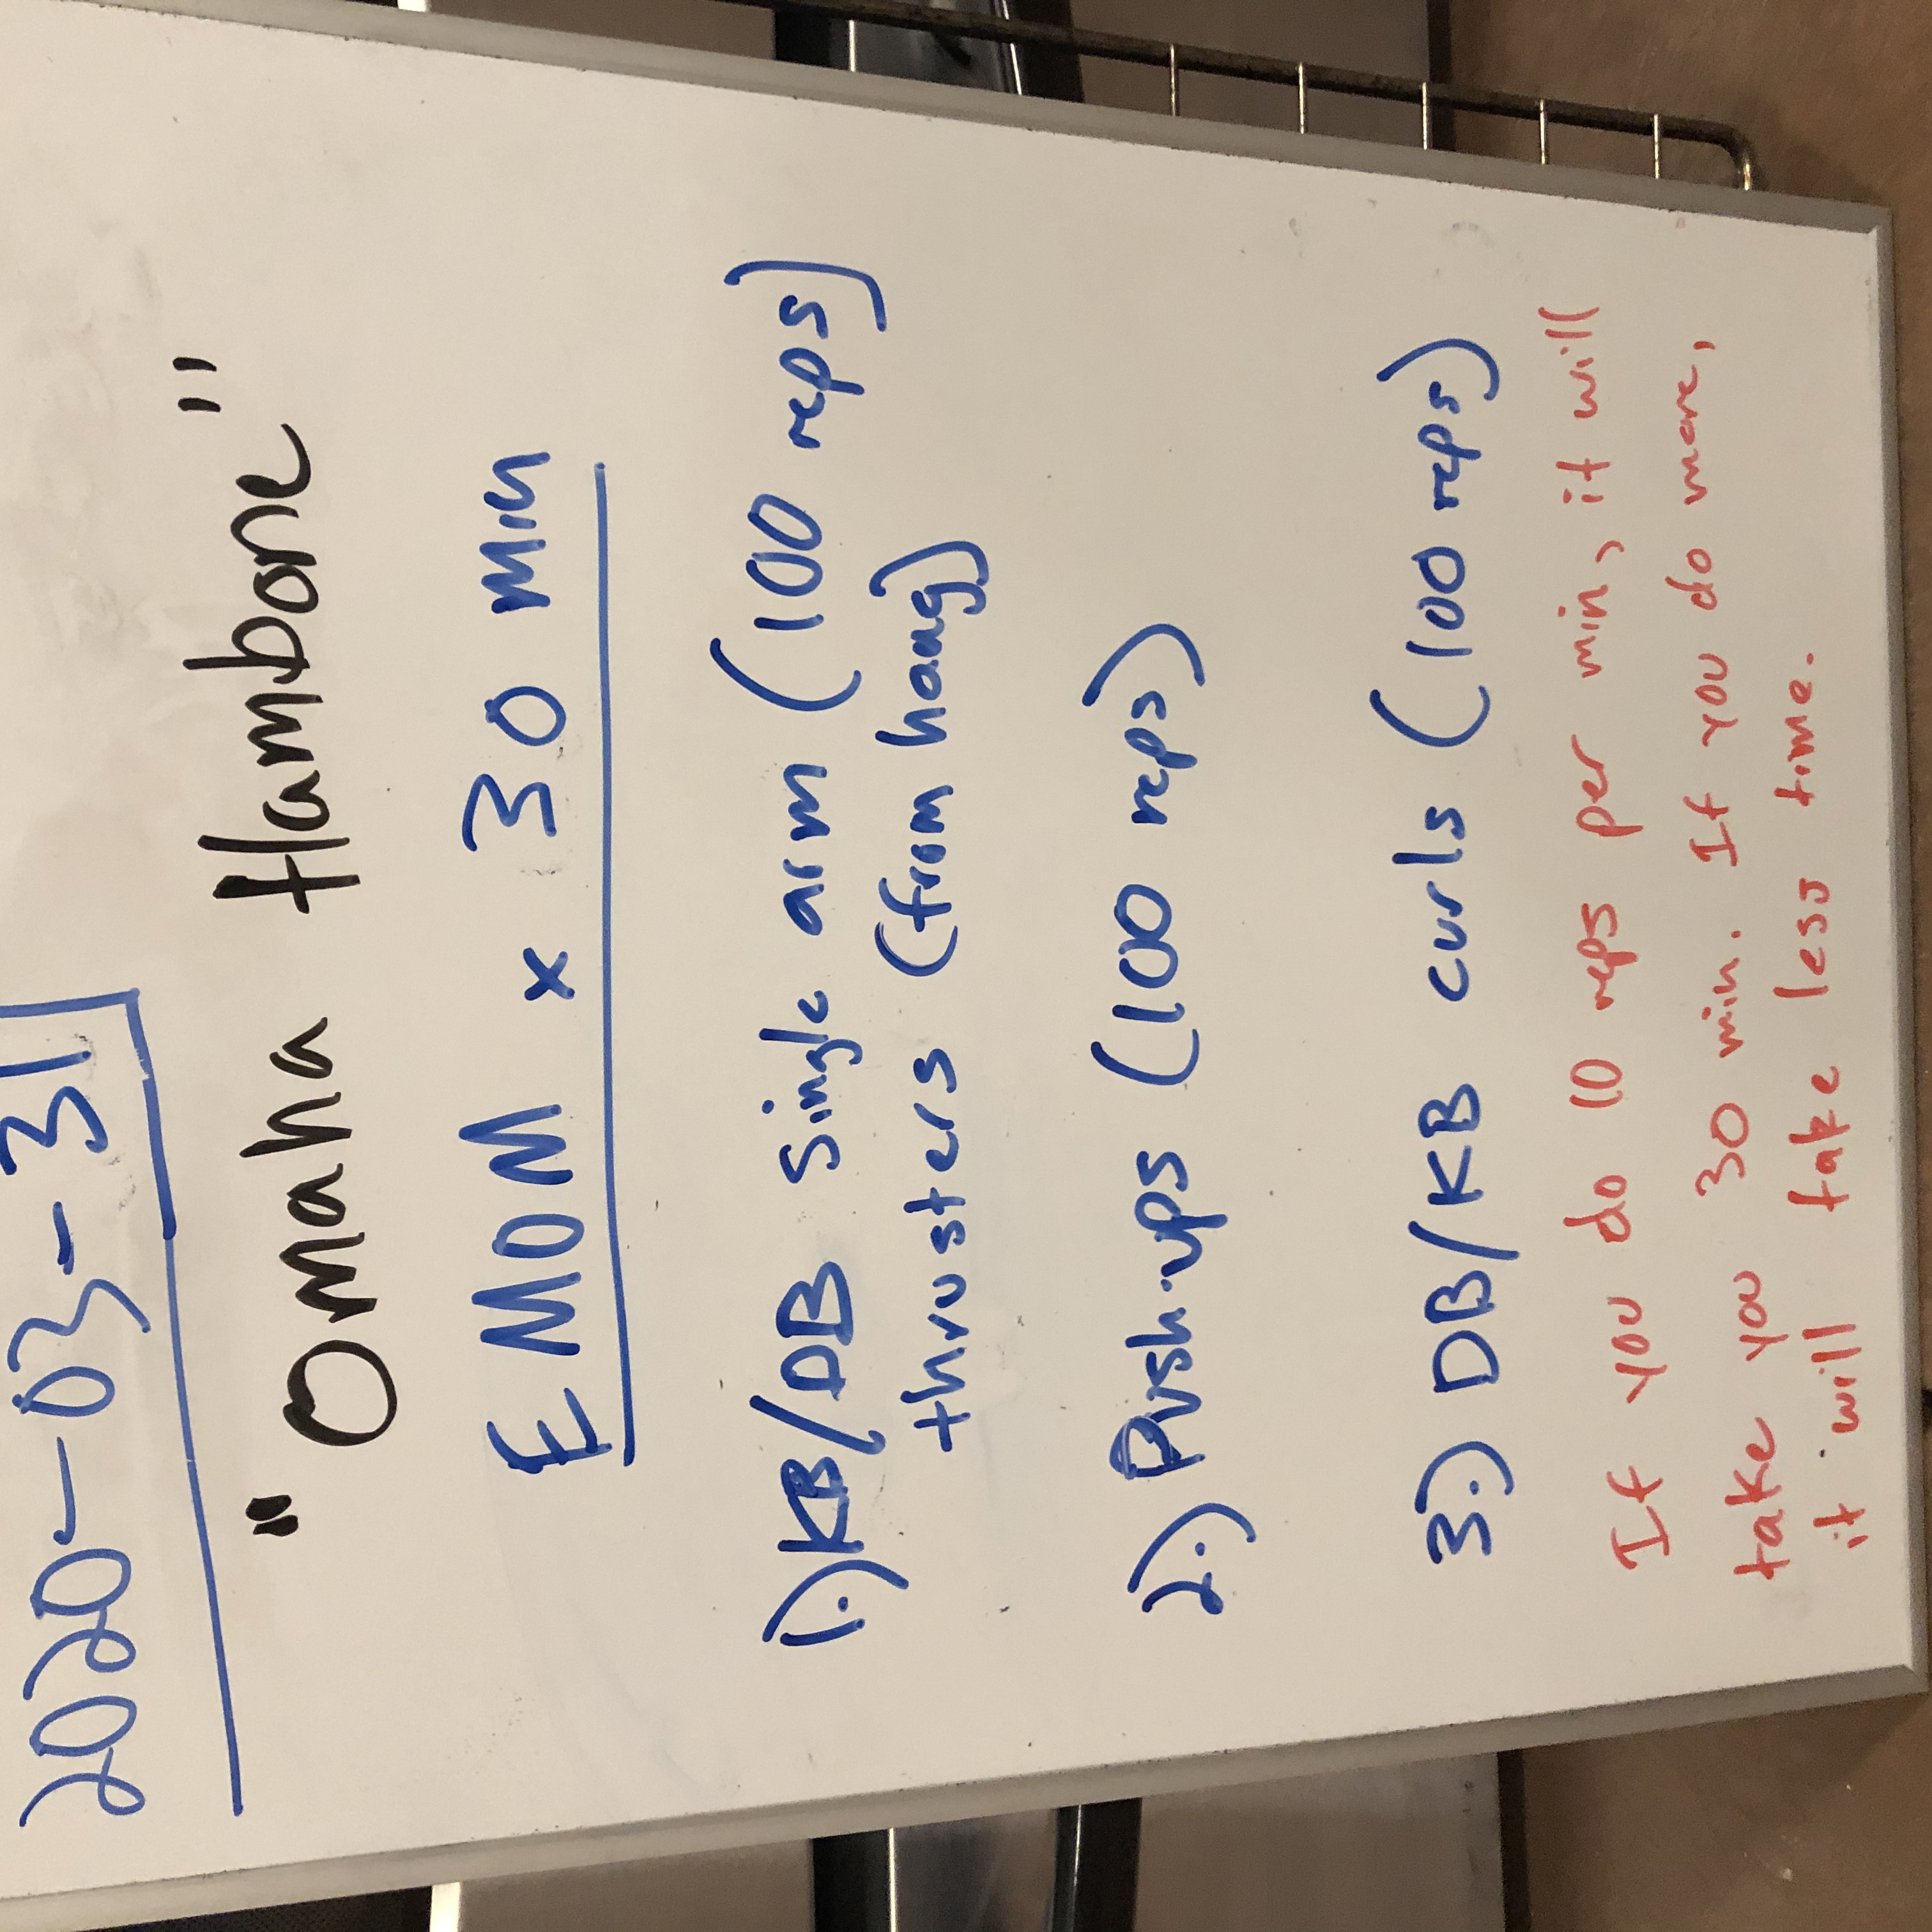 2020-03-31
"Omaha Hambone"
EMOM x 30 min
1.) KB/DB Single arm (100 reps)
thrusters (from hang)
2.) Push-ups (100 reps)
3.) DB/KB curls (100 reps)
If you do 10 reps per min, it will
take you 30 min. If you do more,
it will take less time.